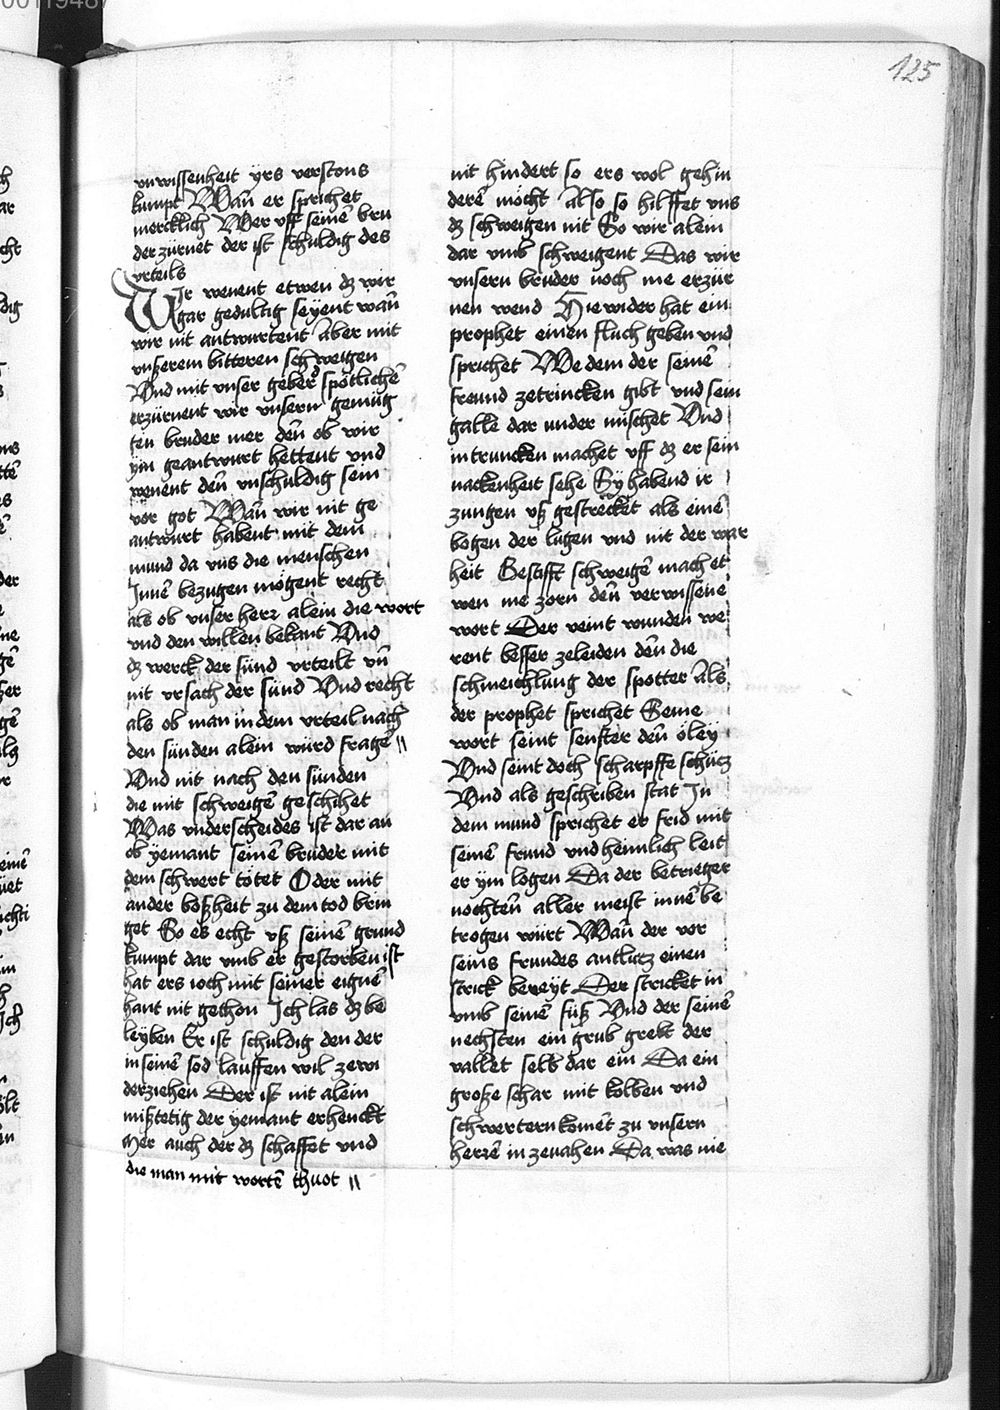 00119487
125
vnwissenheit yrs verstons
kumpt Wañ er sprichet
mercklich Wer vff seinē bru
der zürnet der ist schuldig des
vrteils
Wir wenent etwen dz wir
gar gedultig seyent wañ
wir nit antwurtent Aber mit
vnserem bitteren schweigen
Vnd mit vnser geberd spötlichē
erzürnent wir vnsern gemüg
ten bruder mer deñ ob wir
ym geantwurt hettent vnd
wenent deñ vnschuldig sein
vor got Wañ wir nit ge
antwurt habent mit dem
mund da vns die menschen
Innē bezugen mögent recht
als ob vnser herr alein die wort
vnd den willen bekant Vnd
dz werck der sünd vrteilt vñ
nit vrsach der sünd Vnd recht
als ob man in dem vrteil nach
den sünden alein würd fragē
Vnd nit nach den sünden
die mit schweigē geschihet
Was vnderscheides ist dar an
ob yemant seinē bruder mit
dem schwert tötet Oder mit
ander boßheit zu dem tod brin
get So es echt vß seinē grund
kumpt dar vmb er gestorben ist
hat ers ioch mit seiner eignē
hant nit gethon Ich las dz be
leyben Er ist schuldig den der
in seinē sod lauffen wil zewi
derziehen Der ist nit alein
mißtetig der yemant erhenckt
Mer auch der dz schaffet vnd
die man mit wortē thuot
nit hindert so ers wol gehin
derē möcht Also so hilffet vns
dz schweigen nit So wir alein
dar vmb schweigent Das wir
vnsern bruder noch me erzür
nen wend Hie wider hat ein
prophet einen fluch geben vnd
sprichet We dem der seinē
freund zetrincken gibt vnd sein
galle dar vnder mischet Vnd
in truncken machet vff dz er sein
nackenheit sehe Sy habend ir
zungen vß gestrecket als einē
bogen der lugen vnd nit der war
heit Gestifft schweigē machet
wen me zorn deñ verwissene
wort Der veint wunden we
rent besser zeleiden deñ die
schmeichlung der spotter Als
der prophet sprichet Seine
wort seint senfter deñ öley
Vnd seint doch scharpffe schütz
Vnd als geschriben stat In
dem mund sprichet er frid mit
seinē frund vnd heimlich leit
er ym logen Da der betrieger
nochteñ aller meist innē be
trogen würt Wañ der vor
seins frundes antlutz einen
strick bereyt Der stricket in
vmb seinē füß Vnd der seinē
nechsten ein grub grebt der
vallet selb dar ein Da ein
große schar mit kolben vnd
schwertern komēt zu vnsern
herrē in zeuahen Da was nie